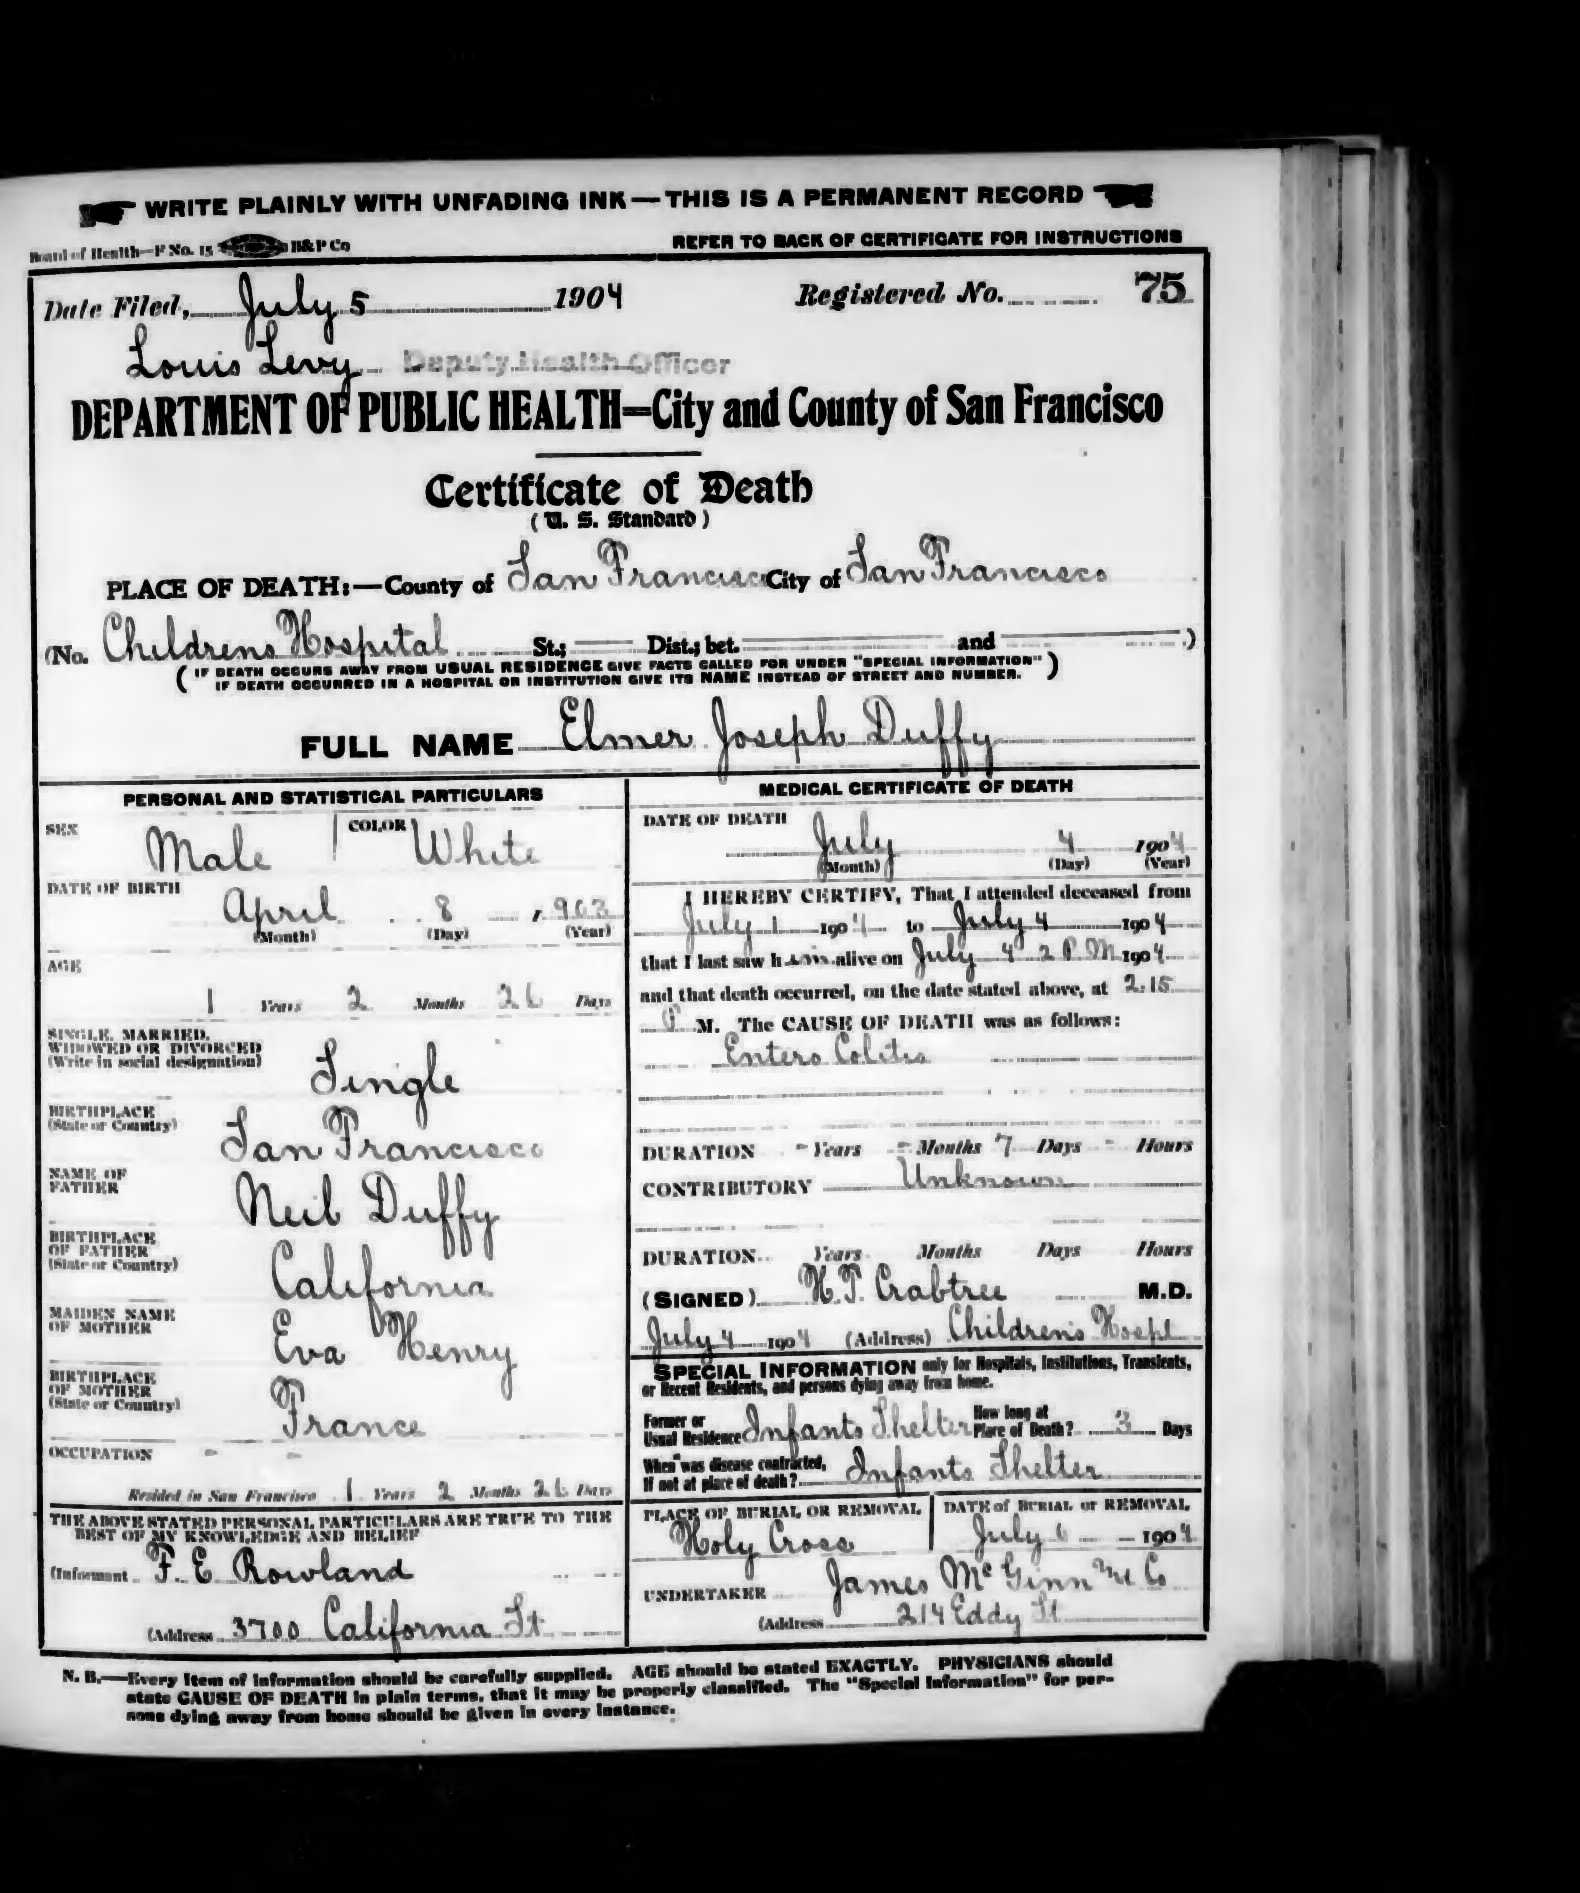 WRITE PLAINLY WITH UNFADING INK — THIS IS A PERMANENT RECORD
Board of Health—F No. 15 H&P Co
REFER TO BACK OF CERTIFICATE FOR INSTRUCTIONS
Date Filed, July 5 1904 Registered No. 75
Louis Levy Deputy Health Officer
DEPARTMENT OF PUBLIC HEALTH=City and County of San Francisco
Certificate of Death
(U. S. Standard)
PLACE OF DEATH:—County of San Francisco City of San Francisco
(No. Childrens Hospital St.; Dist.; bet. and )
(IF DEATH OCCURS AWAY FROM USUAL RESIDENCE GIVE FACTS CALLED FOR UNDER "SPECIAL INFORMATION"
IF DEATH OCCURRED IN A HOSPITAL OR INSTITUTION GIVE ITS NAME INSTEAD OF STREET AND NUMBER.)
FULL NAME Elmer Joseph Duffy
PERSONAL AND STATISTICAL PARTICULARS
SEX Male COLOR White
DATE OF BIRTH
April 8, 1903
(Month) (Day) (Year)
AGE
1 Years 2 Months 26 Days
SINGLE, MARRIED,
WIDOWED OR DIVORCED
(Write in social designation)
Single
BIRTHPLACE
(State or Country)
San Francisco
NAME OF
FATHER
Neil Duffy
BIRTHPLACE
OF FATHER
(State or Country)
California
MAIDEN NAME
OF MOTHER
Eva Henry
BIRTHPLACE
OF MOTHER
(State or Country)
France
OCCUPATION - -
Resided in San Francisco 1 Years 2 Months 26 Days
THE ABOVE STATED PERSONAL PARTICULARS ARE TRUE TO THE
BEST OF MY KNOWLEDGE AND BELIEF
(Informant F. E. Rowland
(Address 3700 California St
MEDICAL CERTIFICATE OF DEATH
DATE OF DEATH
July 4 1904
(Month) (Day) (Year)
I HEREBY CERTIFY, That I attended deceased from
July 1 1904 to July 4 1904
that I last saw him alive on July 4 2 P M 1904
and that death occurred, on the date stated above, at 2.15
P M. The CAUSE OF DEATH was as follows:
Entero Colitis
DURATION - Years - Months 7 Days - Hours
CONTRIBUTORY Unknown
DURATION Years Months Days Hours
(SIGNED) H.T. Crabtree M.D.
July 4 1904 (Address) Children's Hospl
SPECIAL INFORMATION only for Hospitals, Institutions, Transients,
or Recent Residents, and persons dying away from home.
Former or
Usual Residence Infants Shelter How long at
Place of Death? 3 Days
When was disease contracted,
If not at place of death? Infants Shelter
PLACE OF BURIAL OR REMOVAL
Holy Cross
DATE of BURIAL or REMOVAL
July 6 1904
UNDERTAKER James McGinn &amp; Co
(Address 214 Eddy St
N. B.—Every item of information should be carefully supplied. AGE should be stated EXACTLY. PHYSICIANS should
state CAUSE OF DEATH in plain terms, that it may be properly classified. The "Special Information" for per-
sons dying away from home should be given in every instance.